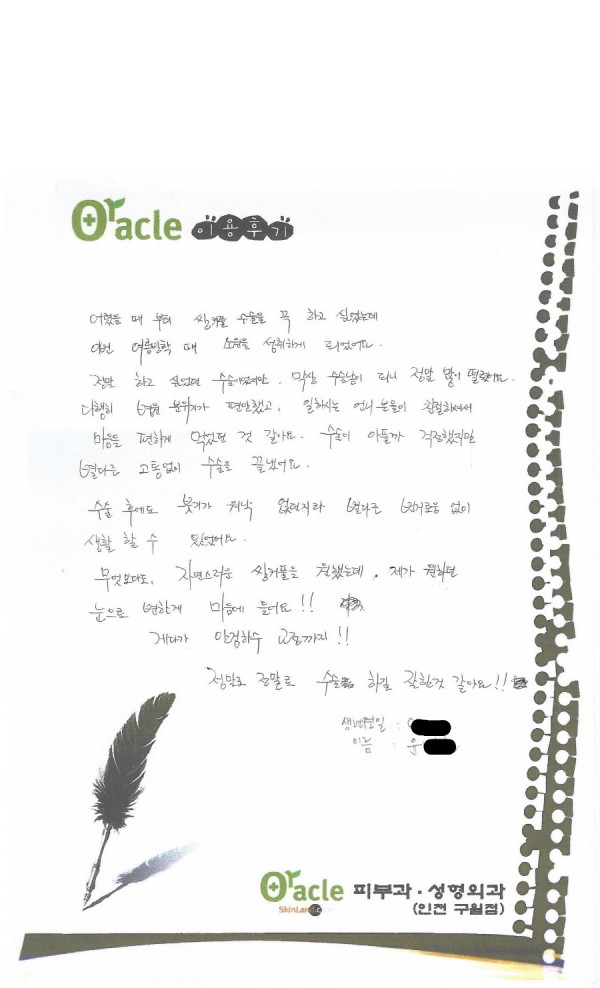 Oracle 이용후기
어렸을 때 부터 쌍커풀 수술을 꼭 하고 싶었는데
이번 여름방학 때 소원을 성취하게 되었어요.
정말 하고 싶었던 수술이였지만, 막상 수술날이 되니 정말 많이 떨렸어요.
다행히 병원 분위기가 편안했고, 일하시는 언니분들이 친절하셔서
마음을 편하게 먹었던 것 같아요. 수술이 아플까 걱정했지만
별다른 고통없이 수술을 끝냈어요.
수술 후에도 붓기가 워낙 없던지라 별다른 번거로움 없이
생활 할 수 있었어요.
무엇보다도, 자연스러운 쌍커풀을 원했는데, 제가 원하던
눈으로 변한게 마음에 들어요!!
게다가 안검하수 교정까지!!
정말로 정말로 수술 하길 잘한것 같아요!!
생년월일 :
이름 : 윤
Oracle 피부과·성형외과
SkinLan
(인천 구월점)